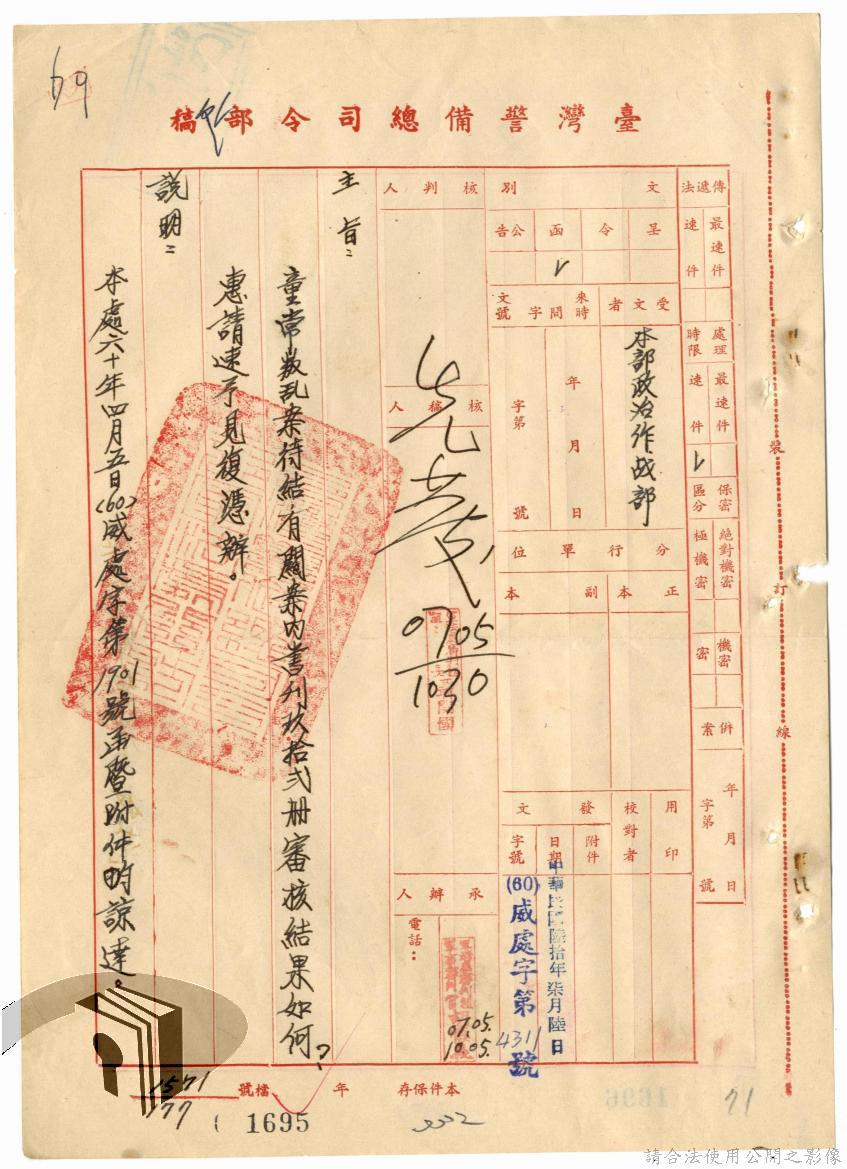 69
臺灣警備總司令部稿
傳遞法
最速件
速件
處理時限
最速件
速件
保密區分
絕對機密
極機密
機密
密
併案
年月日
字第號
文別
呈
令
函
公告
受文者
來文時間字號
本部政治作战部
年月日
字第號
分行單位
正本
副本
用印
校對者
發文
附件
日期
字號
中華民國陸拾年柒月陸日
(60)威處字第4311號
核判人
核稿人
07.05
1030
承辦人
電話:
07.05.
10.05.
主旨:
童常叛乱案待結有關案内書刊玖拾弍册審核結果如何?
惠請速予見復憑辦。
說明:
本處六十年四月五日(60)威處字第1901號函暨附件昀諒達。
裝
訂
線
本件保存
年
檔號
1571
177
1695
71
請合法使用公開之影像